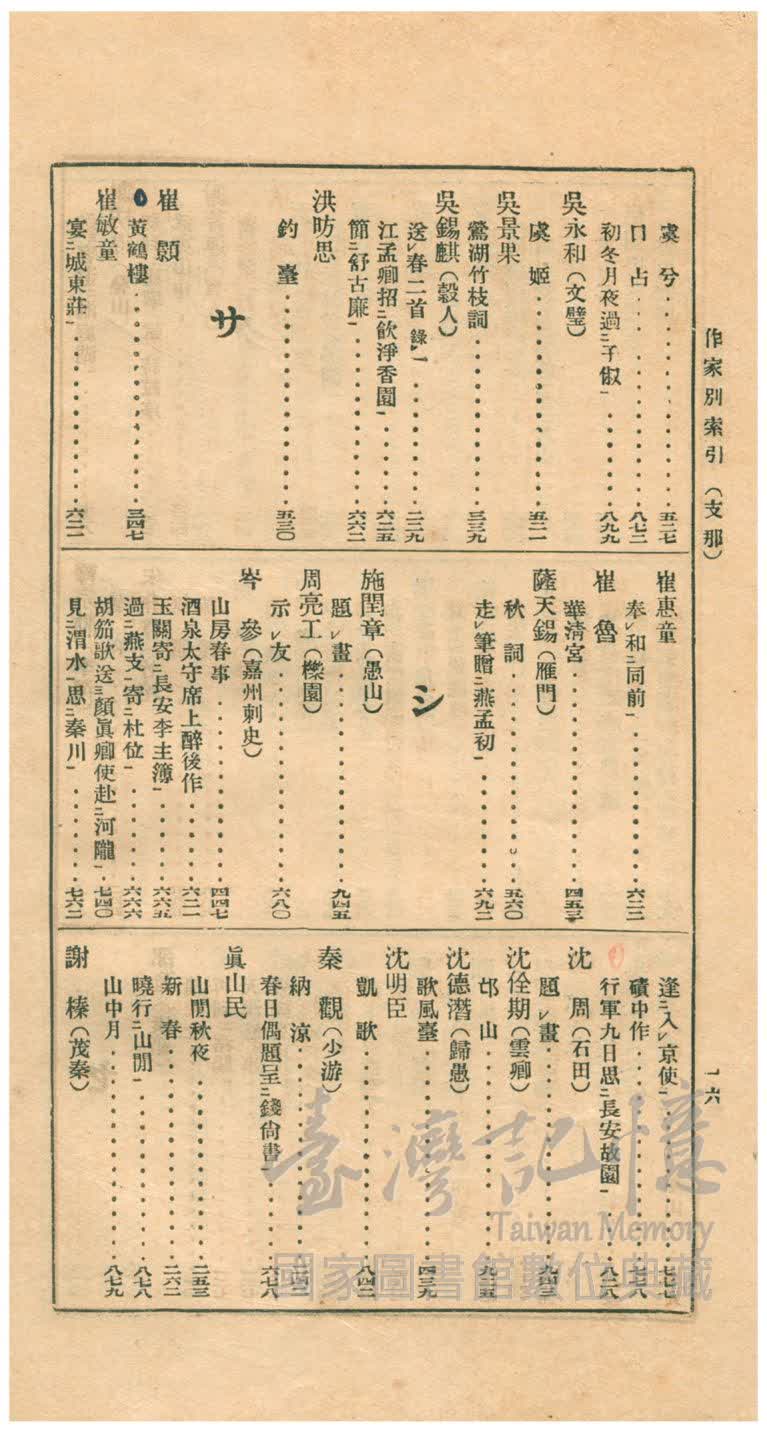 作家別索引（支那）
一六
虞兮‥‥‥‥五二七
口占‥‥‥‥八七二
初冬月夜過ニ子俶一‥‥‥‥八九九
吳永和（文璧）
虞姬‥‥‥‥五二一
吳景果
鶯湖竹枝詞‥‥‥‥三三九
吳錫麒（穀人）
送レ春二首錄一‥‥‥‥二二九
江孟卿招ニ飲淨香園一‥‥‥‥六二五
簡ニ舒古廉一‥‥‥‥六六二
洪昉思
釣臺‥‥‥‥五三〇
サ
崔顥
黃鶴樓‥‥‥‥三四七
崔敏童
宴ニ城東莊一‥‥‥‥六二一
崔惠童
奉レ和ニ同前一‥‥‥‥六二二
崔魯
華清宮‥‥‥‥四五三
薩天錫（雁門）
秋詞‥‥‥‥五六〇
走レ筆贈ニ燕孟初一‥‥‥‥六九二
シ
施閏章（愚山）
題レ畫‥‥‥‥九四五
周亮工（櫟園）
示レ友‥‥‥‥六八〇
岑參（嘉州刺史）
山房春事‥‥‥‥四四七
酒泉太守席上醉後作‥‥‥‥六二一
玉關寄ニ長安李主簿一‥‥‥‥六六五
過ニ燕支一寄ニ杜位一‥‥‥‥六六六
胡笳歌送三顏眞卿使赴ニ河隴一‥‥七四〇
見ニ渭水一思ニ秦川一‥‥‥‥七六二
逢ニ入レ京使一‥‥‥‥七七七
磧中作‥‥‥‥七七八
行軍九日思ニ長安故園一‥‥‥‥八一八
沈周（石田）
題レ畫‥‥‥‥九四三
沈佺期（雲卿）
邙山‥‥‥‥九一五
沈德潛（歸愚）
歌風臺‥‥‥‥四三九
沈明臣
凱歌‥‥‥‥八四二
秦觀（少游）
納涼‥‥‥‥二四三
春日偶題呈ニ錢尙書一‥‥‥‥六七八
眞山民
山閒秋夜‥‥‥‥二五三
新春‥‥‥‥二六二
曉行ニ山閒一‥‥‥‥八七八
山中月‥‥‥‥八七九
謝榛（茂秦）
臺灣記憶
Taiwan Memory
國家圖書館數位典藏